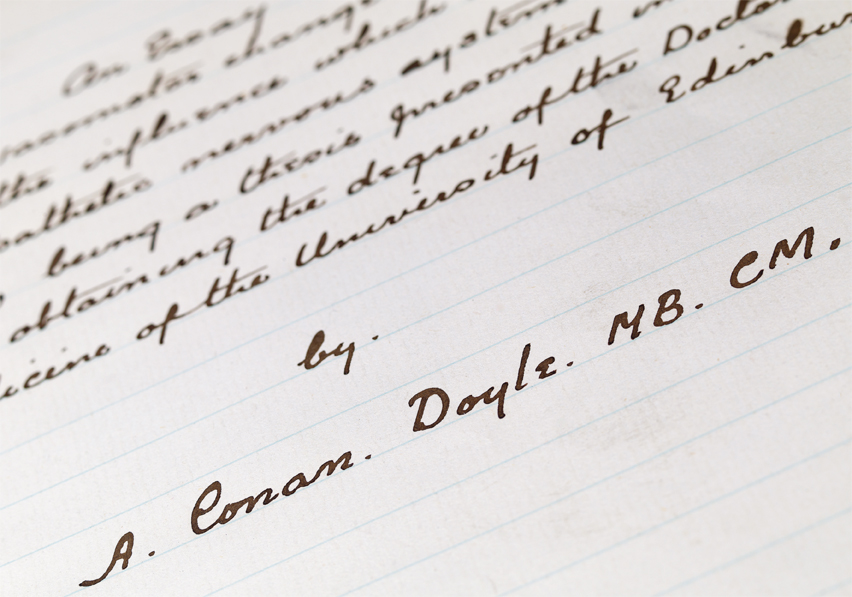 An Essay
vasomotor changes
the influence which
pathetic nervous system
being a thesis presented in
obtaining the degree of the Doctor
icine of the University of Edinbur
by.
A. Conan. Doyle. MB. CM.